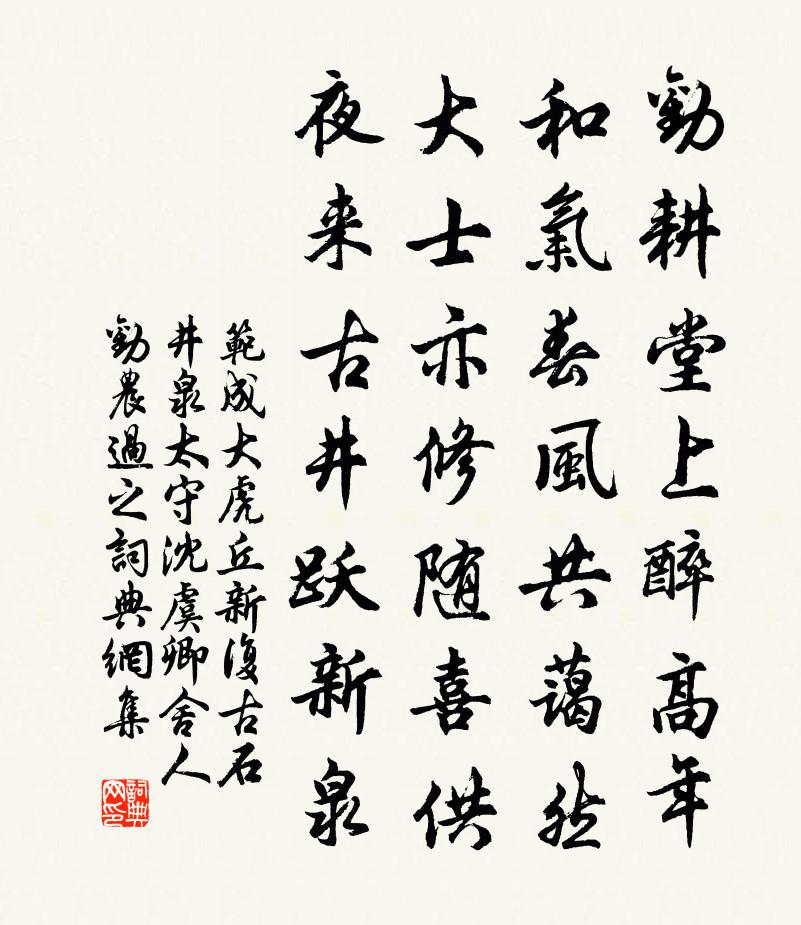 勸耕堂上醉高年
和氣春風共藹然
大士亦修随喜供
夜来古井跃新泉
範成大虎丘新復古石
井泉太守沈虞卿舍人
勸農過之詞典網集
詞典
网印